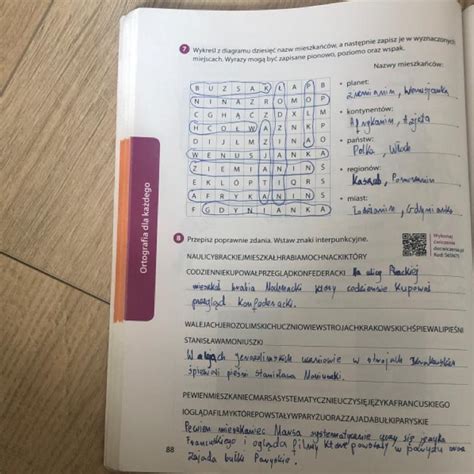 7 Wykreśl z diagramu dziesięć nazw mieszkańców, a następnie zapisz je w wyznaczonych
miejscach. Wyrazy mogą być zapisane pionowo, poziomo oraz wspak.
Nazwy mieszkańców:
B U Z S A K Ł A F B
N I N A Z R O M O P
C G H Ą C Z D X L M
H C O Ł W A Z N K P
D I J Ł M Z I N A O
W E N U S J A N K A
Z I E M I A N I N Ś
E K L Ó P T I Q R S
A F R Y K A N I N S
F G D Y N I A N K A
• planet:
Ziemianin,
• kontynentów:
Afrykanin, Azjata
• państw:
Polka, Włoch
• regionów:
Kaszub, Pomorzanin
• miast:
Łodzianin, Gdynianka
Ortografia dla każdego
8 Przepisz poprawnie zdania. Wstaw znaki interpunkcyjne.
Wykonaj
ćwiczenie
NAULICYBRACKIEJMIESZKAŁHRABIAMOCHNACKIKTÓRY
CODZIENNIEKUPOWAŁPRZEGLĄDKONFEDERACKI Na ulicy Brackiej
mieszkał hrabia który codziennie kupował
przegląd konfederacki.
WALEJACHJEROZOLIMSKICHUCZNIOWIEWSTROJACHKRAKOWSKICHŚPIEWALIPIEŚNI
STANISŁAWAMONIUSZKI
W alejach jerozolimskich uczniowie w strojach krakowskich
śpiewali pieśni stanisława Moniuszki.
PEWIENMIESZKANIECMARSASYSTEMATYCZNIEUCZYSIĘJĘZYKAFRANCUSKIEGO
IOGLĄDAFILMYKTÓREPOWSTAŁYWPARYŻUORAZZAJADABUŁKIPARYSKIE
Pewien mieszkaniec Marsa systematycznie uczy się języka
Francuskiego i ogląda filmy które powstały w paryżu oraz
zajada bułki Paryskie.
88